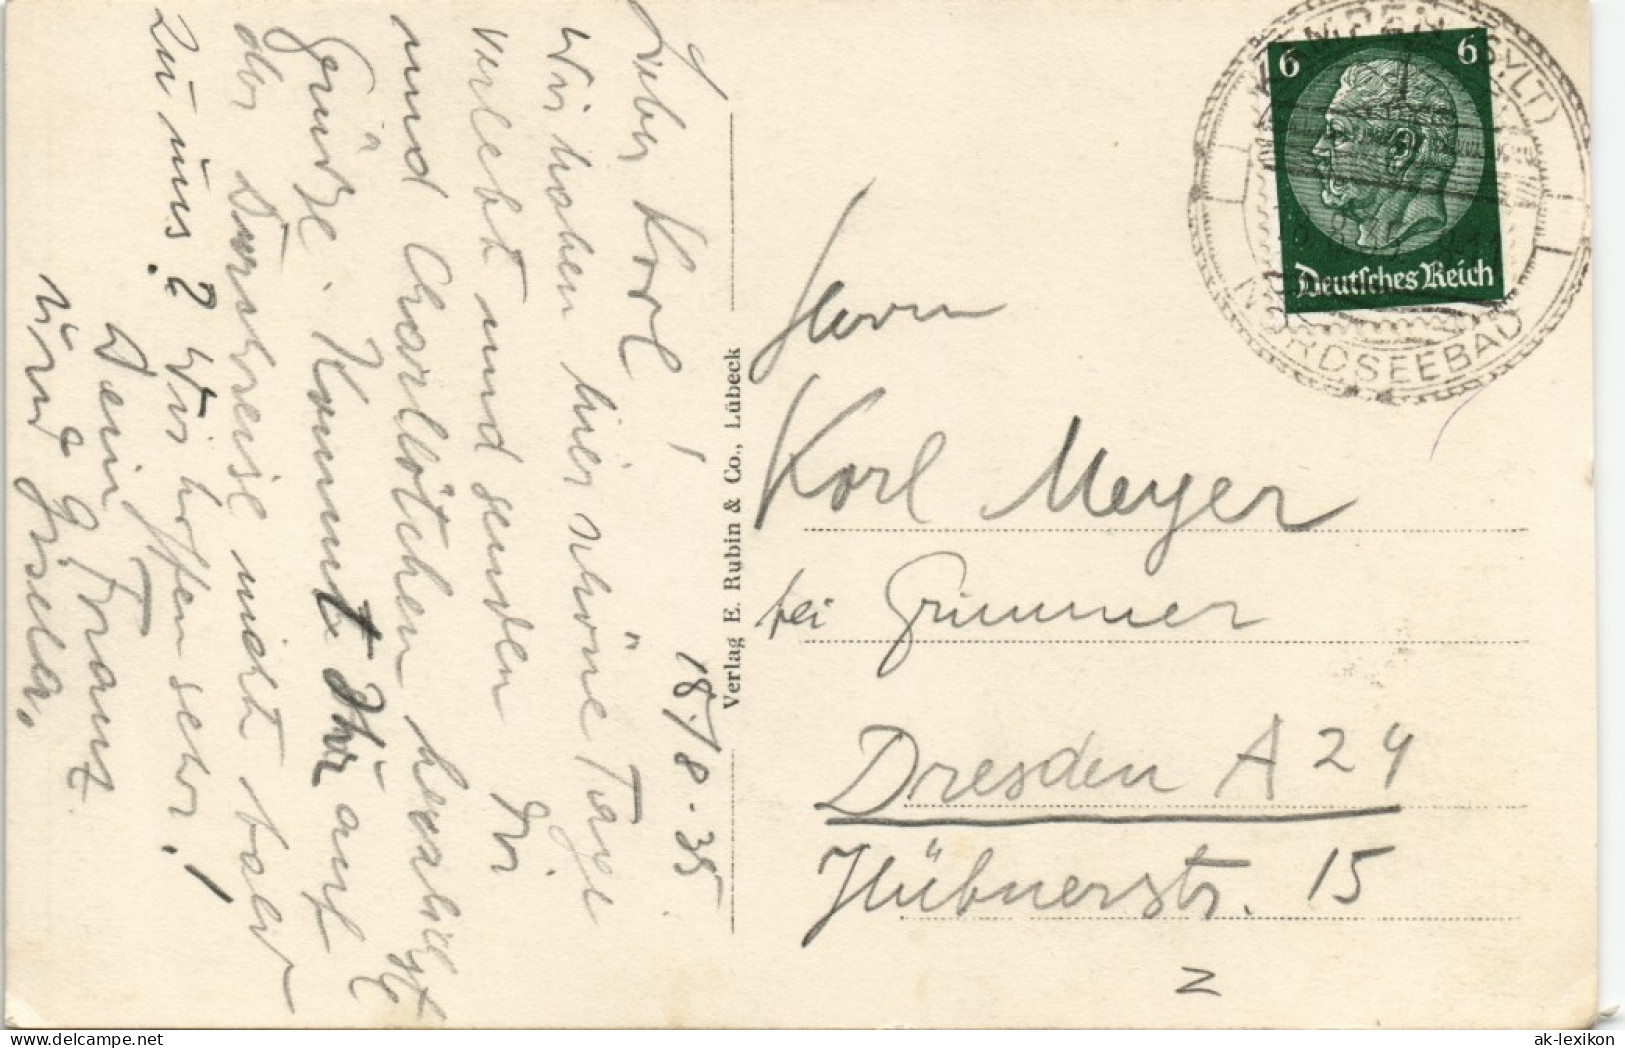 18./8.35
Lieber Karl!
Wir haben hier schöne Tage
verlebt und senden Dir
und Charlöttchen herzligst
Grüsse. Kommt Ihr auf
der Durchreise nicht bald
zu uns? Wir hoffen sehr!
Dein
Franz
und Gisela.
Verlag E. Rubin & Co., Lübeck
6 6
Deutsches Reich
(SYLT)
NORDSEEBAD
Herrn
Karl Meyer
bei Grimmer
Dresden A 24
Hübnerstr. 15
Z
ak-lexikon